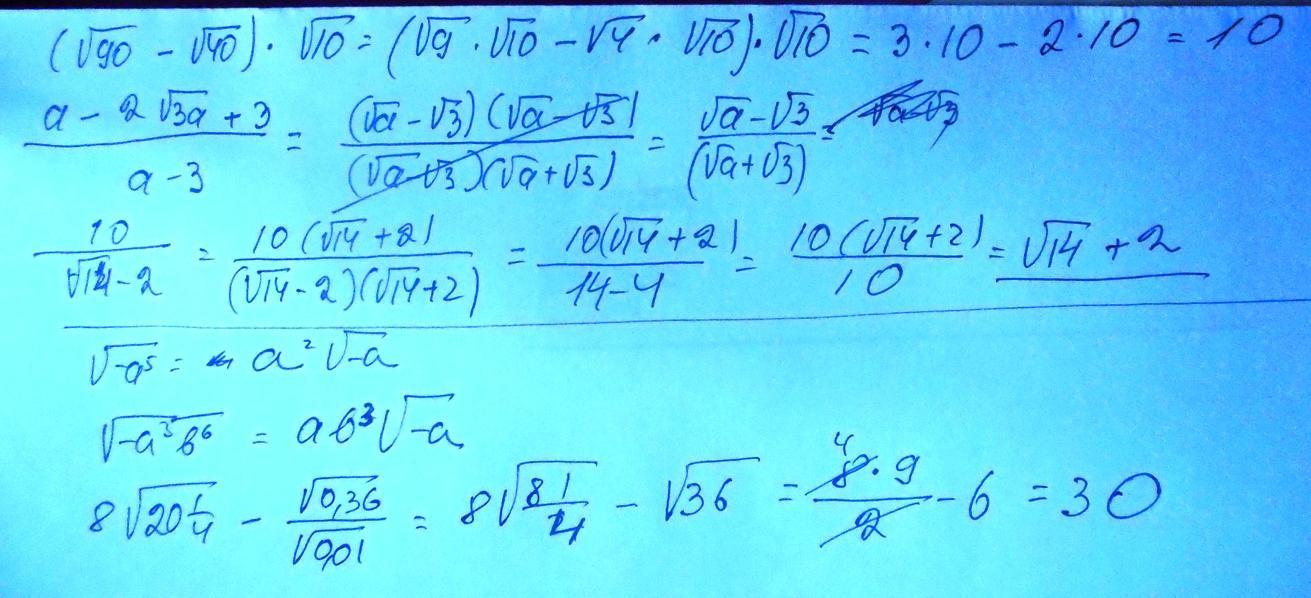 (√90 - √40) · √10 = (√9 · √10 - √4 · √10) · √10 = 3 · 10 - 2 · 10 = 10
(a - 2√3a + 3)/(a - 3) = ((√a - √3)(√a - √3))/((√a - √3)(√a + √3)) = (√a - √3)/(√a + √3) =
10/(√14 - 2) = 10(√14 + 2)/((√14 - 2)(√14 + 2)) = 10(√14 + 2)/(14 - 4) = 10(√14 + 2)/10 = √14 + 2
√-a⁵ = a²√-a
√-a³b⁶ = ab³√-a
8√20 1/4 - √0,36/√0,01 = 8√81/4 - √36 = 8·9/2 - 6 = 30